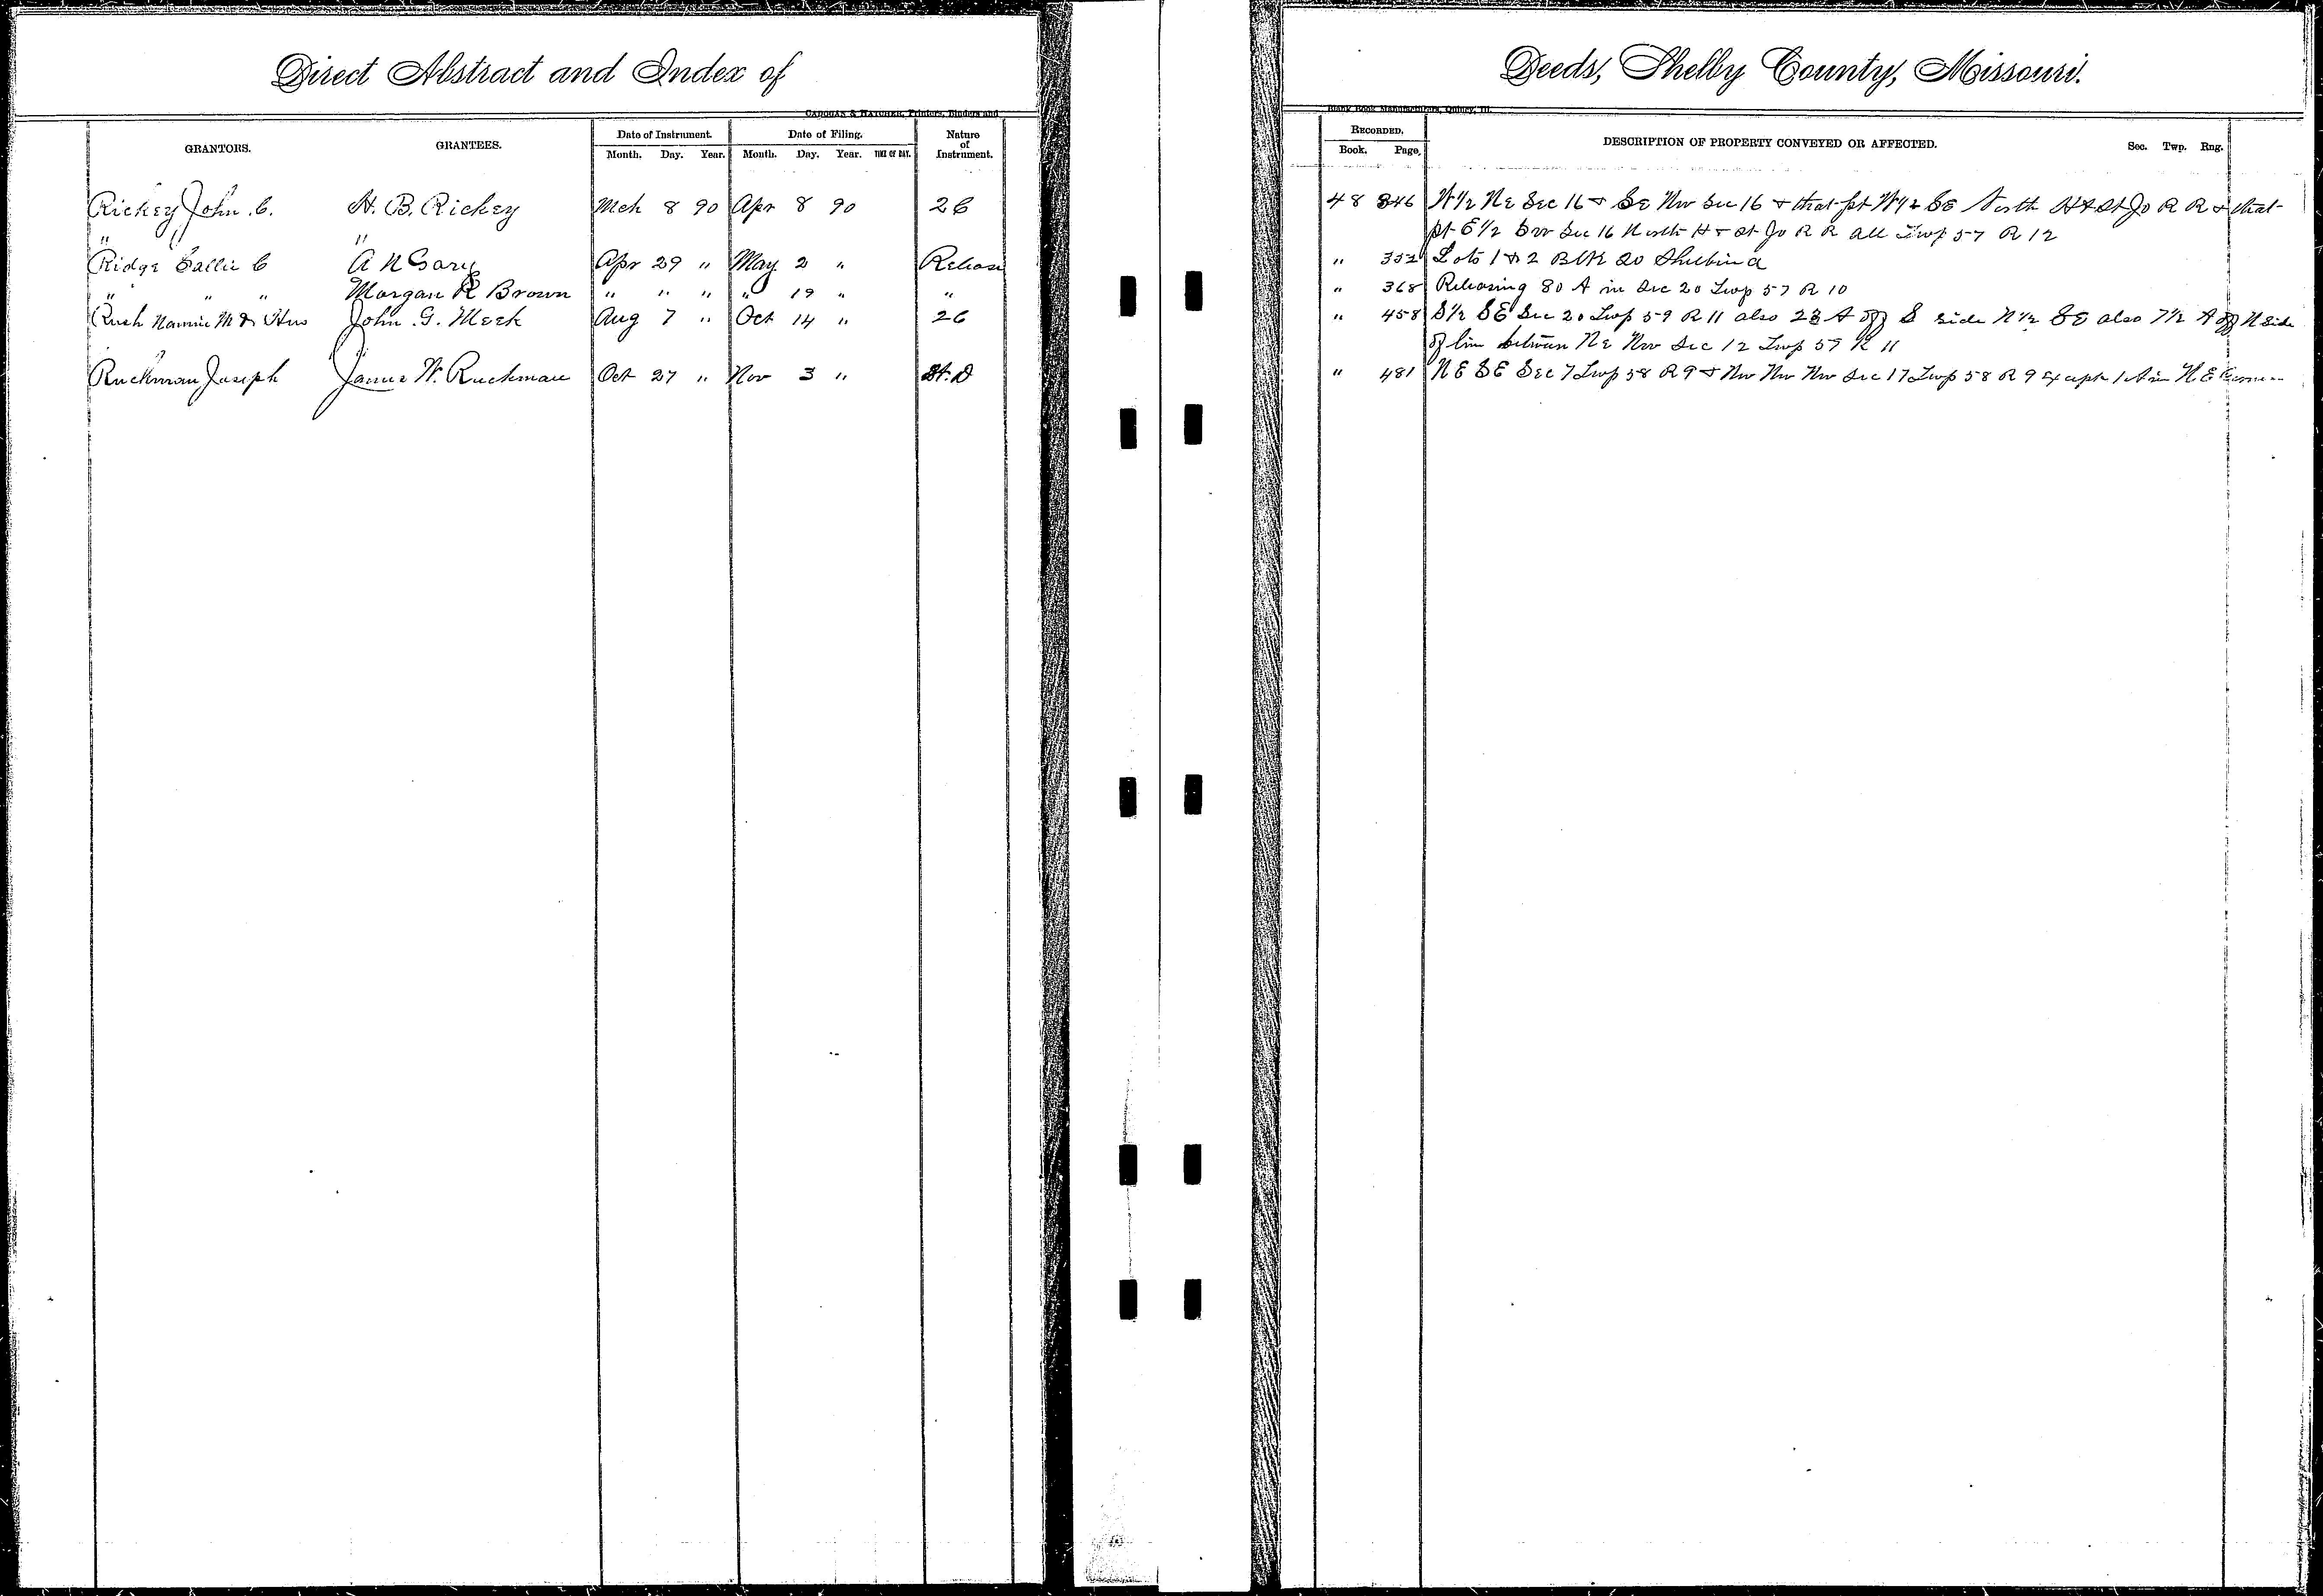 Direct Abstract and Index of
Deeds, Shelby County, Missouri.
CADOGAN & HATCHER, Printers, Binders and
Blank Book Manufacturers, Quincy, Ill.
GRANTORS. GRANTEES. Date of Instrument. Date of Filing. Nature of Instrument.
Month. Day. Year. Month. Day. Year. TIME OF DAY.
RECORDED. DESCRIPTION OF PROPERTY CONVEYED OR AFFECTED. Sec. Twp. Rng.
Book. Page.
Rickey John C. H. B. Rickey Mch 8 90 Apr 8 90 2C 48 346 W½ NE Sec 16 & SE NW Sec 16 & that pt W½ SE North H & St Jo R R & that
" " pt E½ SW Sec 16 North H & St Jo R R all Twp 57 R 12
Ridge Sallie C A N Gary Apr 29 " May 2 " Release " 352 Lots 1 & 2 Blk 20 Shelbina
" " " Morgan R Brown " " " " 19 " " " 368 Releasing 80 A in Sec 20 Twp 57 R 10
Rush Nannie M & Hus John G. Meek Aug 7 " Oct 14 " 2C " 458 S½ SE Sec 20 Twp 59 R 11 also 23 A off S side N½ SE also 7½ A off N side
of line between NE NW Sec 12 Twp 57 R 11
Ruckman Joseph James W. Ruckman Oct 27 " Nov 3 " W.D " 481 NE SE Sec 7 Twp 58 R 9 & NW NW NW Sec 17 Twp 58 R 9 Except 1 A in N.E Corner